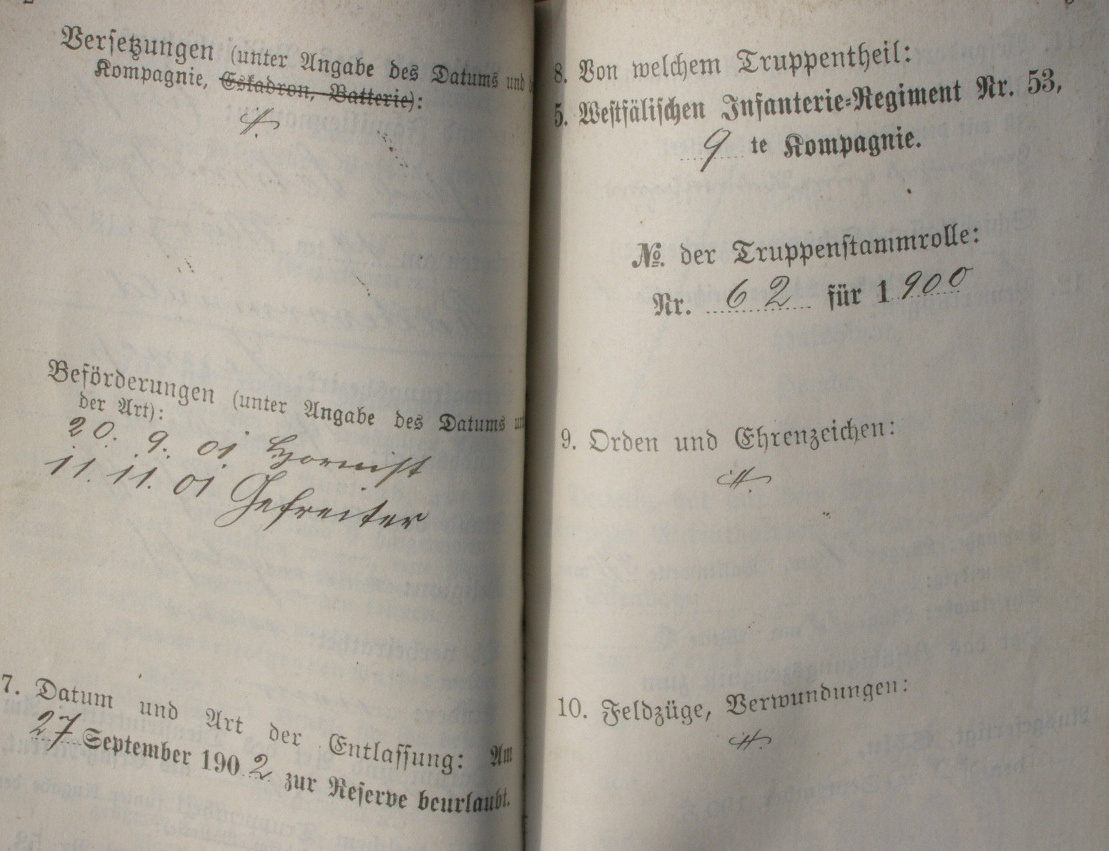 Versetzungen (unter Angabe des Datums und
Kompagnie, Eskadron, Batterie):
Beförderungen (unter Angabe des Datums
der Art):
20. 9. 01 Hornist
11. 11. 01 Gefreiter
7. Datum und Art der Entlassung: Am
27 September 1902 zur Reserve beurlaubt.
8. Von welchem Truppentheil:
5. Westfälischen Infanterie-Regiment Nr. 53,
9 te Kompagnie.
No. der Truppenstammrolle:
Nr. 62 für 1900
9. Orden und Ehrenzeichen:
10. Feldzüge, Verwundungen: